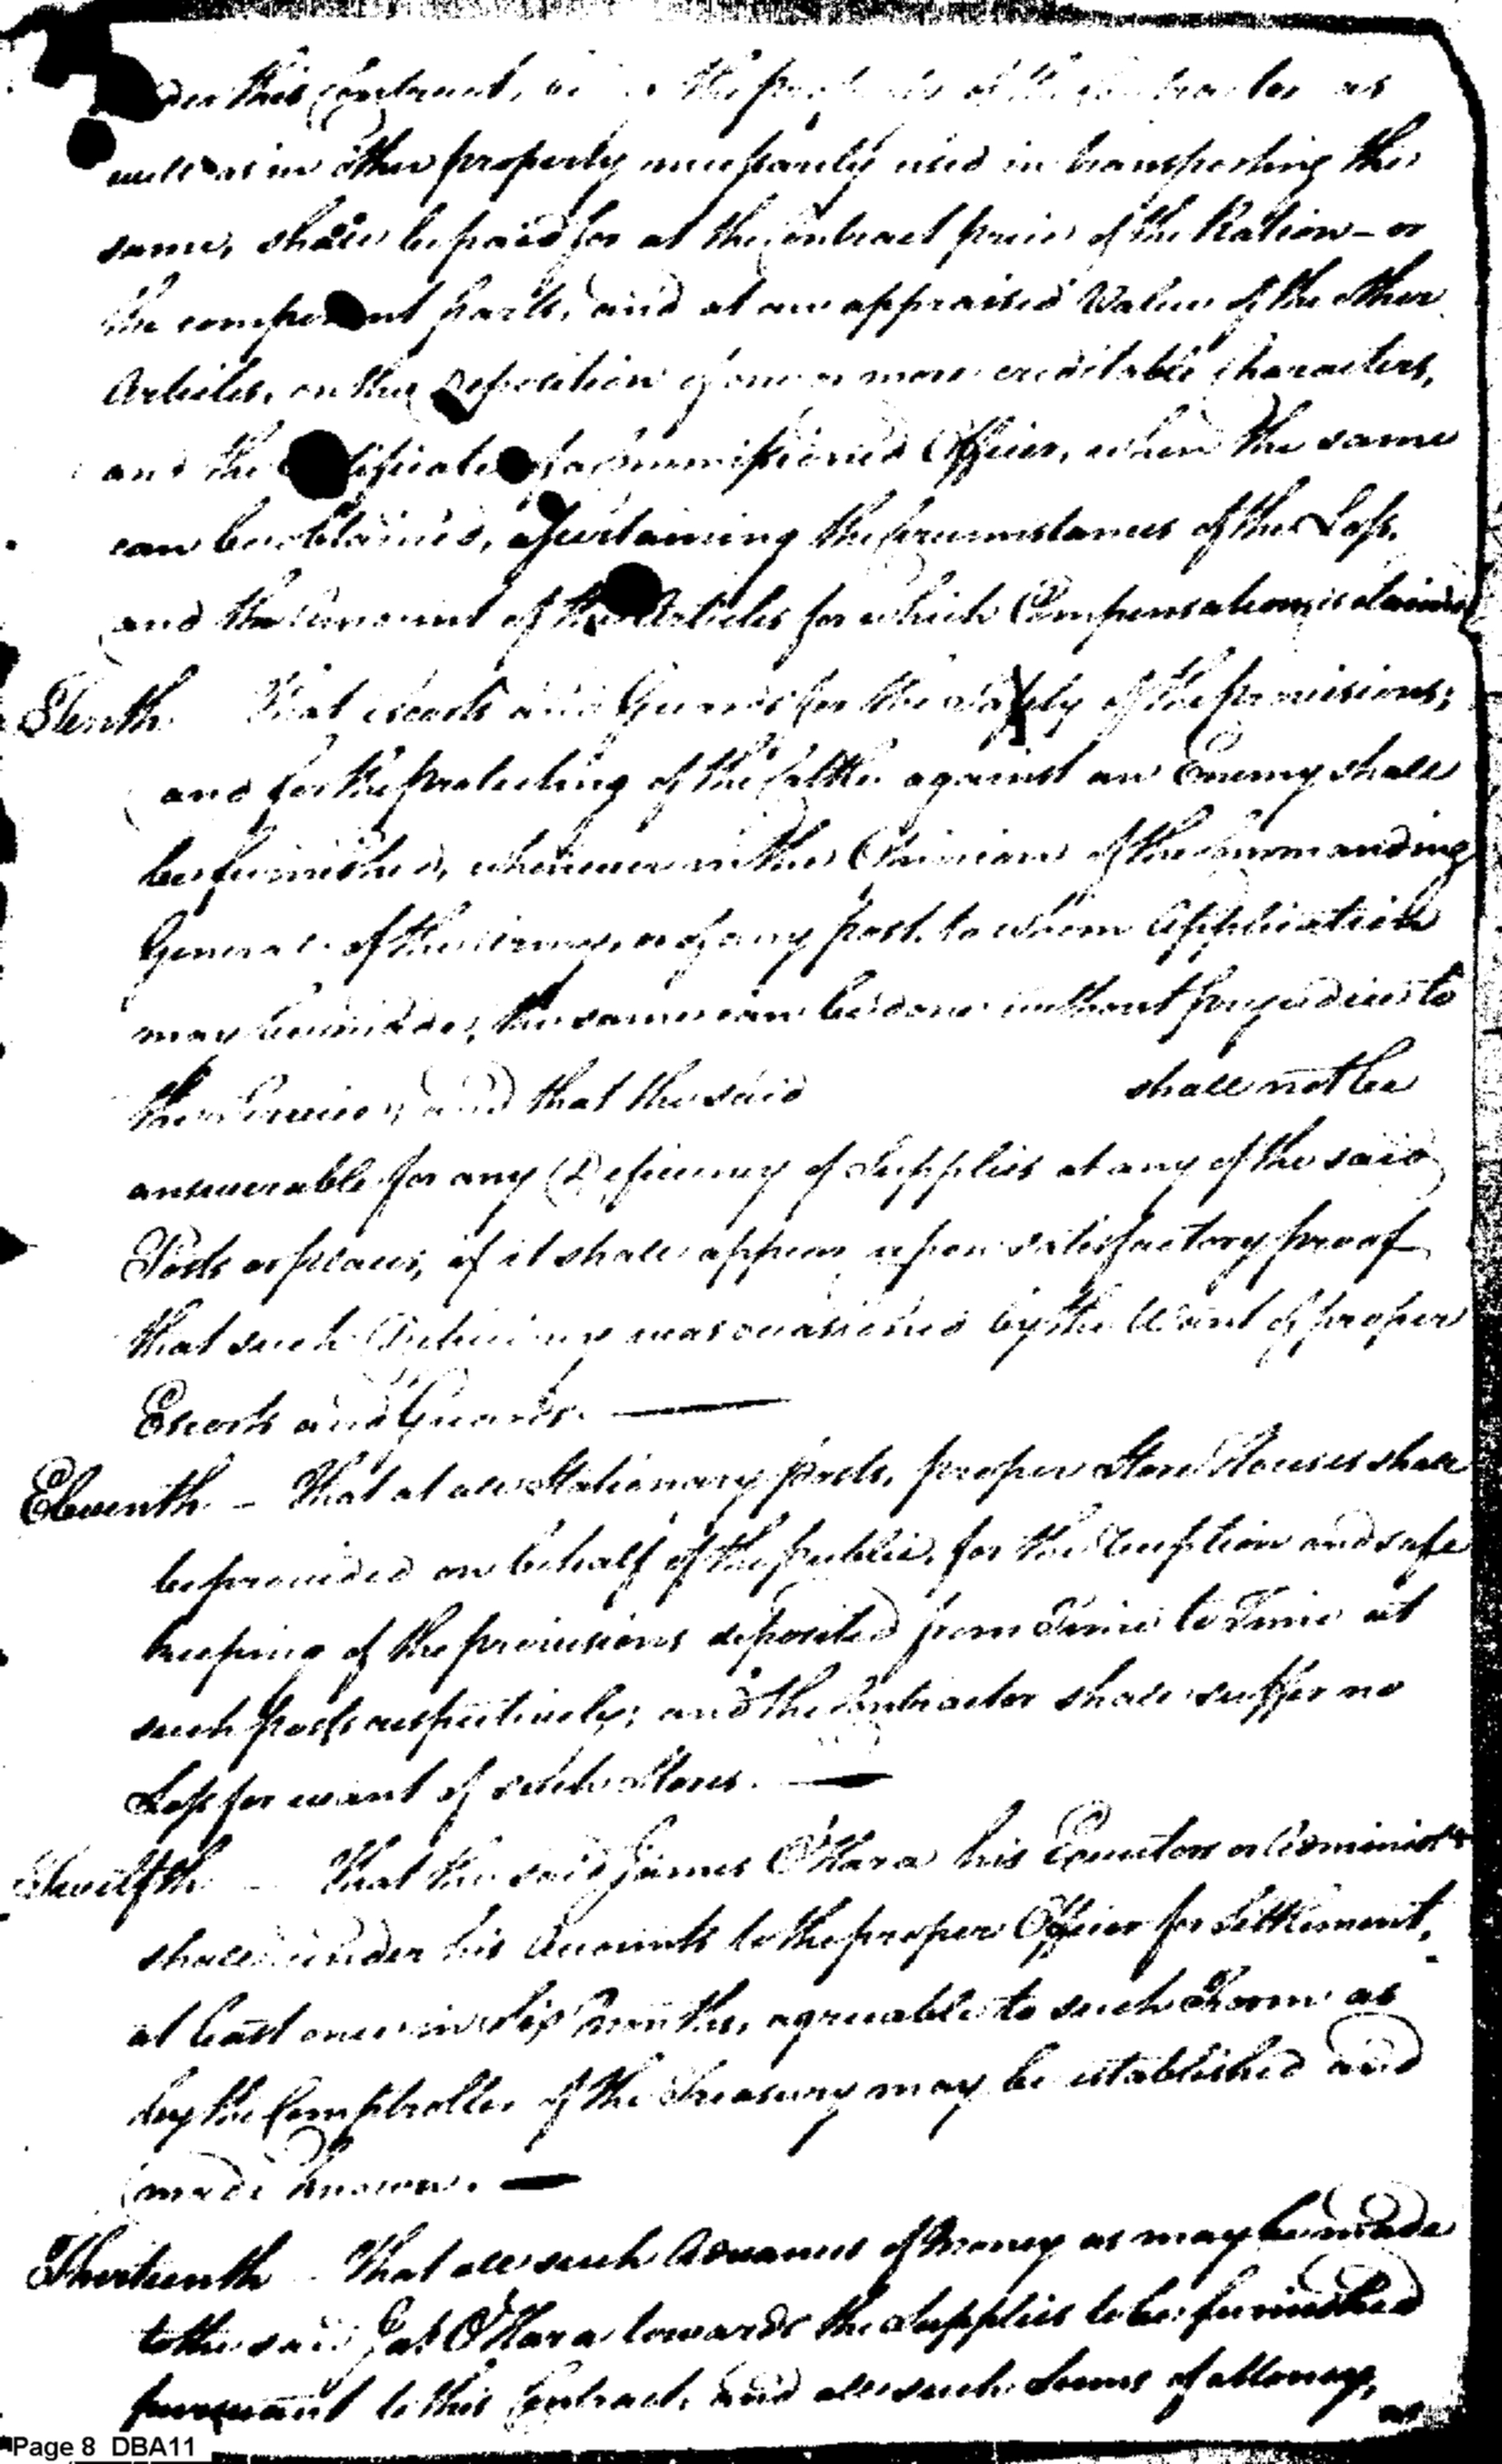 this Contract, as
well as in other property necessarily used in transporting the
same, shall be paid for at the Contract price of the Ration – or
the component parts, and at an appraised Value of the other
Articles, on the Deposition of one or more creditable Characters,
and the of a Commissioned Officer, when the same
can be obtained, ascertaining the Circumstances of the Loss,
and the amount of the Articles for which Compensation is claimed
Tenth That escorts and Guards for the safety of the provisions,
and for the protecting of the Cattle against an Enemy shall
be furnished, whenever in the Opinion of the Commanding
General of the army, or of any post, to whom Application
may be made, the same can be done without prejudice to
the Service; and that the said shall not be
answerable for any Deficiency of Supplies at any of the said
Posts or places, if it shall appear upon satisfactory proof
that such Deficiency was occasioned by the Want of proper
Escorts and Guards. —
Eleventh – That at all Stationary posts, proper Store Houses shall
be provided on behalf of the public, for the reception and safe
keeping of the provisions deposited from Time to Time at
such posts respectively; and the Contractor shall suffer no
Loss for want of such Stores. —
Twelfth – That the said James O'Hara his Executors or Administrs
shall render his Accounts to the proper Officer for Settlement,
at least once in Six Months, agreeable to such Form as
by the Comptroller of the Treasury may be established and
made known. —
Thirteenth – That all such Advances of Money as may be made
to the said Jas O'Hara towards the Supplies to be furnished
pursuant to this Contract, and all such Sums of Money,
as
Page 8 DBA11